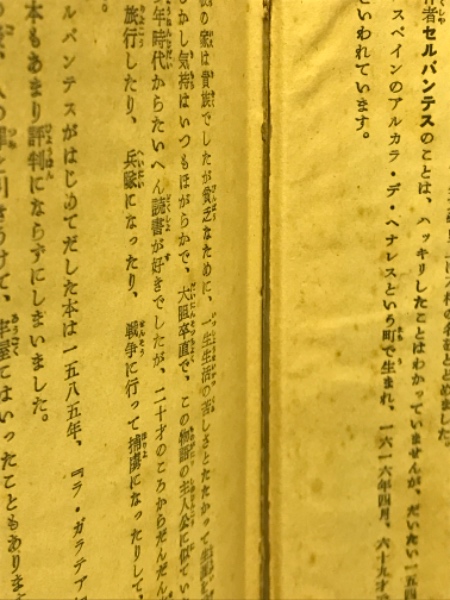 セルバンテスのことは、ハッキリしたことはわかっていませんが、だいたい一五四
スペインのアルカラ・デ・ヘナレスという町で生まれ、一六一六年四月、六十九才
といわれています。
の家は貴族でしたが貧乏なために、一生生活の苦しさとたたかって
しかし気持はいつもほがらかで、大胆卒直で、この物語の主人公に似てい
年時代からたいへん読書が好きでしたが、二十才のころからだんだん
旅行したり、兵隊になったり、戦争に行って捕虜になったりして、
ルバンテスがはじめてだした本は一五八五年、『ラ・ガラテア
本もあまり評判にならずにしまいました。
牢屋にはいったこともありま